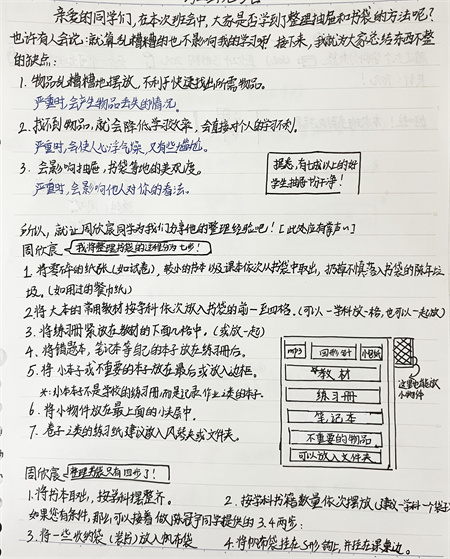 亲爱的同学们,在本次班会中,大家是否学到了整理抽屉和书袋的方法呢?
也许有人会说:就算乱糟糟的也不影响我的学习呀!接下来,我就为大家总结东西不整
的缺点:
1.物品乱糟糟地摆放,不利于快速找出所需物品。
严重时,会产生物品丢失的情况。
2.找不到物品,就会降低学习效率,会直接对个人的学习不利。
严重时,会使人心浮气燥,又有些尴尬。
3.会影响抽屉,书袋等地的美观度。
严重时,会影响他人对你的看法。
据悉,有七成以上的好
学生抽屉十分干净!
所以,就让周欣宸同学为我们分享他的整理经验吧![此处应有掌声~]
周欣宸
我将整理书袋的过程分为七步!
1.将零碎的纸张(如试卷),较小的书本以及课本依次从书袋中取出,扔掉不慎落入书袋的陈年垃
圾。(如用过的餐巾纸)
2.将大本的常用教材按学科依次放入书袋的前一至四格。(可以一学科放一格,也可以一起放)
3.将练习册紧放在教材的下面几格中。(或放一起)
4.将错题本,笔记本等自己的本子放在练习册后。
5.将小本子或不重要的本子放在最后或放入边框。
*:小本子不是学校的练习册,而是记录作业之类的本子。
6.将小物件放在最上面的小夹层中。
7.卷子之类的练习纸建议放入风琴夹或文件夹。
mp3
回形针
*教材
练习册
笔记本
不重要的物品
可以放入文件夹
这里也能放
小物件
周欣宸
整理书袋只有四步了!
1.将书本取出,按学科摆整齐。
2.按学科书籍数量依次摆放(建议一学科一个袋子)
如果您有条件,那么可以接着做陈冠宇同学提供的3.4两步:
3.将一些收纳袋(装书)放入帆布袋
4.将帆布袋挂在S形钩上,并挂在课桌边。